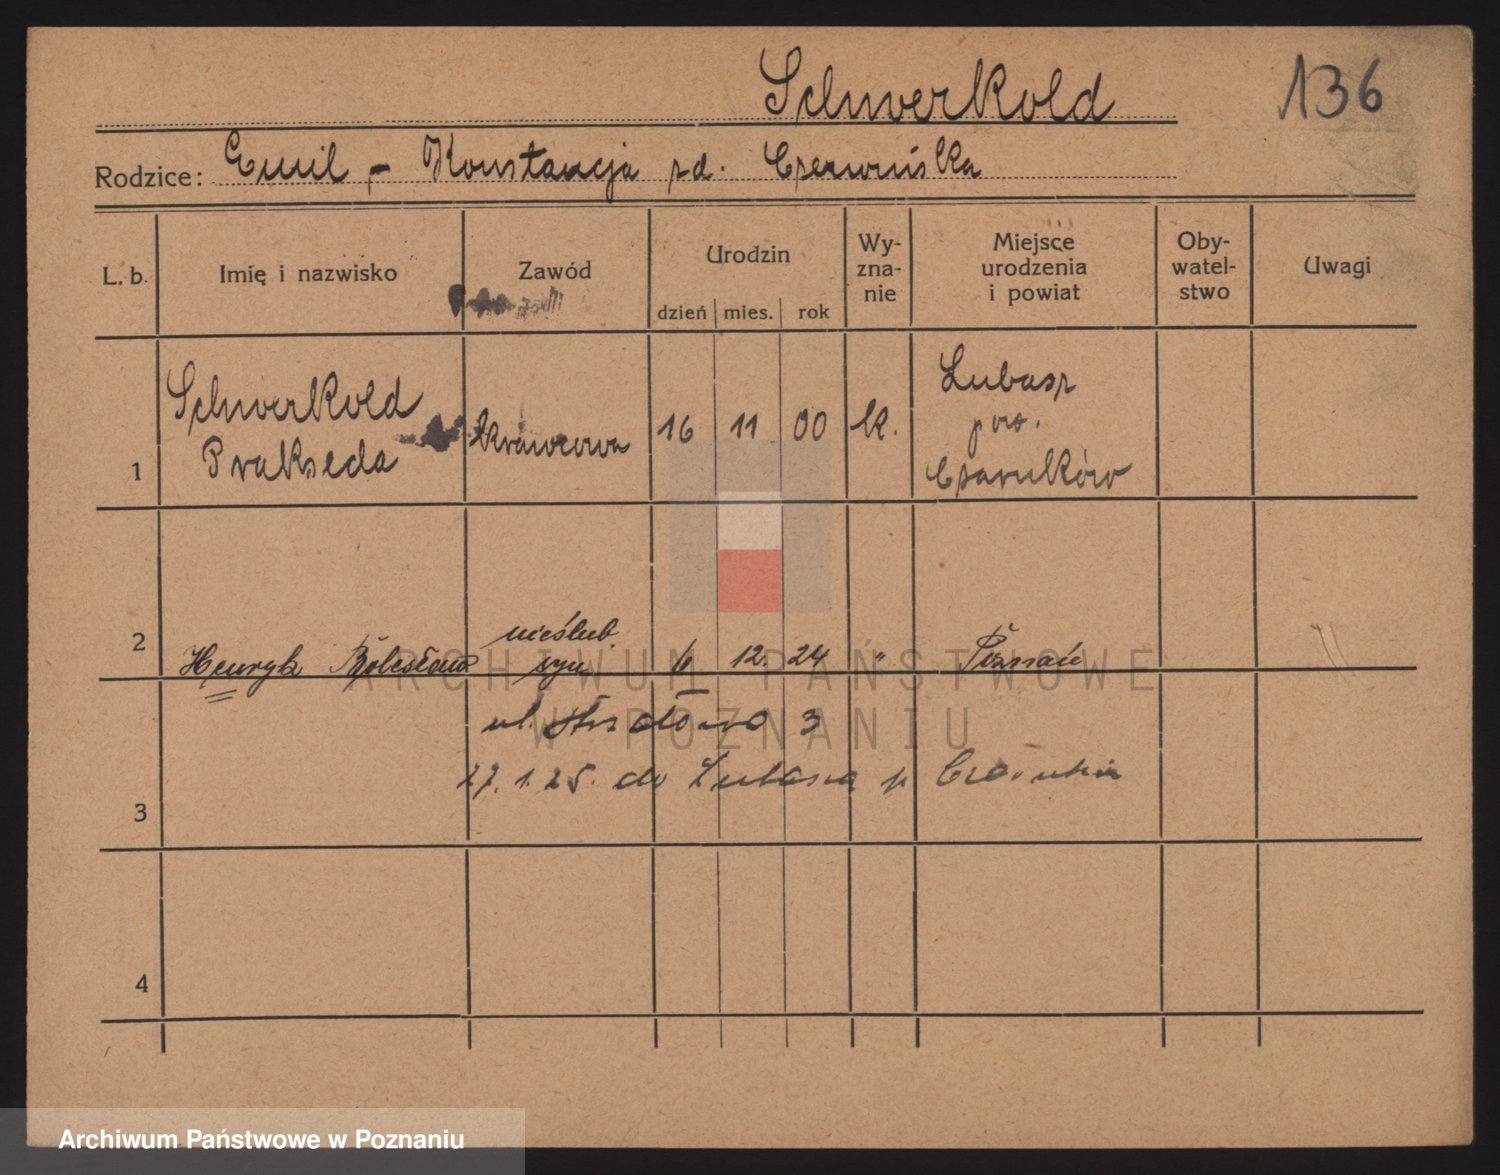 Schwerkold
136
Rodzice: Emil - Konstancja zd. Czerwińska
L. b. Imię i nazwisko Zawód Urodzin dzień mies. rok Wy-zna-nie Miejsce urodzenia i powiat Oby-watel-stwo Uwagi
1 Schwerkold Prakseda krawcowa 16 11 00 k. Lubasz pow. Czarnków
nieślub
2 Henryk Bolesław syn 6 12. 24 " Poznań
ul. 3
27.1.25. do Lubasza p
3
4
ARCHIWUM PAŃSTWOWE
W POZNANIU
Archiwum Państwowe w Poznaniu